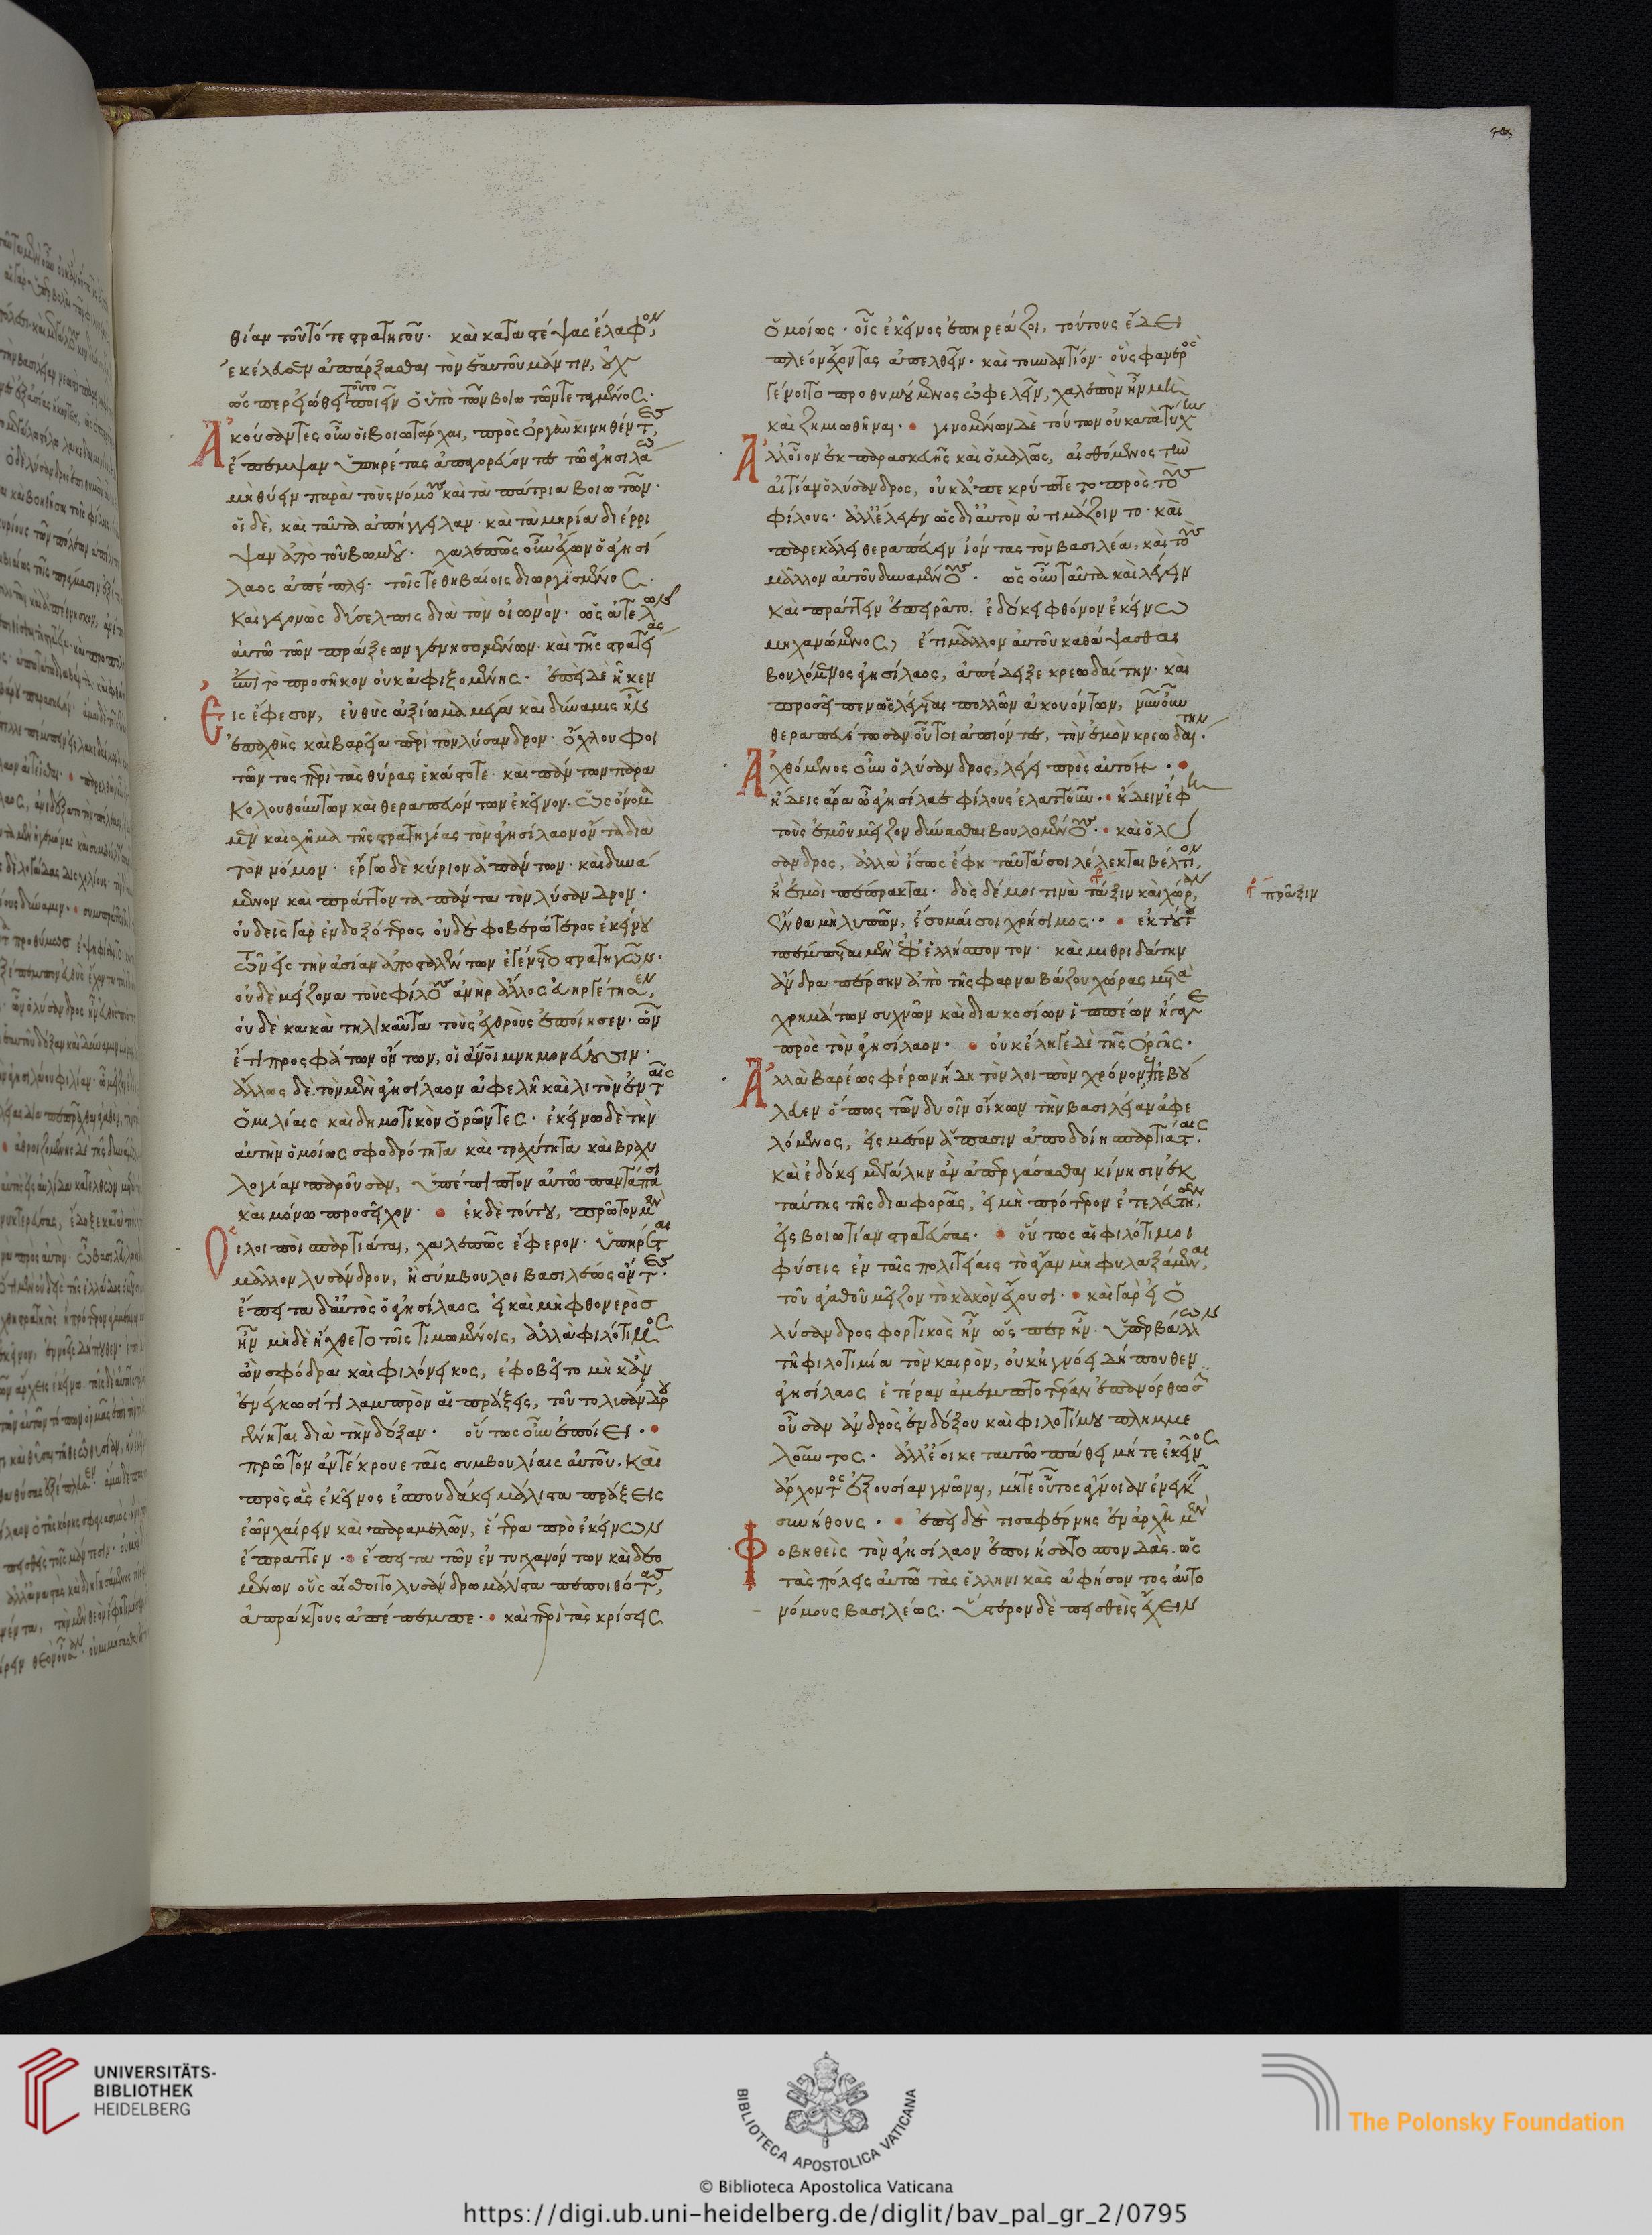 θίαν τοῦ τότε στρατηγοῦ. καὶ καταστέψας ἔλαφον,
ἐκέλευσεν ἀπάρξασθαι τὸν ἑαυτοῦ μάντιν, οὐχ
ὥσπερ εἰώθει τοῦτο ποιεῖν ὁ ὑπὸ τῶν βοιωτῶν τεταγμένος.
Ἀκούσαντες οὖν οἱ βοιωτάρχαι, πρὸς ὀργὴν κινηθέντες,
ἔπεμψαν ὑπηρέτας ἀπαγορεύοντες τῷ ἀγησιλάῳ
μὴ θύειν παρὰ τοὺς νόμους καὶ τὰ πάτρια βοιωτῶν.
οἱ δὲ, καὶ ταῦτα ἀπήγγειλαν. καὶ τὰ μηρία διέρρι
ψαν ἀπὸ τοῦ βωμοῦ. χαλεπῶς οὖν ἔχων ὁ ἀγησί
λαος ἀπέπλει. τοῖς τε θηβαίοις διωργισμένος.
καὶ γεγονὼς δύσελπις διὰ τὸν οἰωνόν. ὡς ἀτελῶν
αὐτῷ τῶν πράξεων γενησομένων. καὶ τῆς στρατείας
ἐπὶ τὸ προσῆκον οὐκ ἀφιξομένης. ἐπεὶ δὲ ἧκεν
Εἰς ἔφεσον, εὐθὺς ἀξίωμα μέγα καὶ δύναμις ἦν
ἐπαχθὴς καὶ βαρεῖα περὶ τὸν λύσανδρον. ὄχλου φοι
τῶντος περὶ τὰς θύρας ἑκάστοτε. καὶ πάντων παρα
κολουθούντων καὶ θεραπευόντων ἐκεῖνον. ὡς ὄνομα
μὲν καὶ σχῆμα τῆς στρατηγίας τὸν ἀγησίλαον ὄντα διὰ
τὸν νόμον. ἔργῳ δὲ κύριον ἁπάντων. καὶ δυνά
μενον καὶ πράττοντα πάντα τὸν λύσανδρον.
οὐδεὶς γὰρ ἐνδοξότερος οὐδὲ φοβερώτερος ἐκείνου
τῶν εἰς τὴν ἀσίαν ἀποσταλέντων ἐγένετο στρατηγῶν.
οὐδὲ μείζονα τοὺς φίλους ἀνὴρ ἄλλος εὐηργέτησεν,
οὐδὲ κακὰ τηλικαῦτα τοὺς ἐχθροὺς ἐποίησεν. ὧν
ἔτι προσφάτων ὄντων, οἱ ἄνθρωποι μνημονεύουσιν.
ἄλλως δὲ τὸν μὲν ἀγησίλαον ἀφελῆ καὶ λιτὸν ἐν ταῖς
ὁμιλίαις καὶ δημοτικὸν ὁρῶντες. ἐκείνῳ δὲ τὴν
αὐτὴν ὁμοίως σφοδρότητα καὶ τραχύτητα καὶ βραχυ
λογίαν παροῦσαν, ὑπέπιπτον αὐτῷ παντάπασι
καὶ μόνῳ προσεῖχον. ἐκ δὲ τούτου, πρῶτον μὲν
Οἱ λοιποὶ σπαρτιάται, χαλεπῶς ἔφερον. ὑπηρέται
μᾶλλον λυσάνδρου, ἢ σύμβουλοι βασιλέως ὄντες.
ἔπειτα δ' αὐτὸς ὁ ἀγησίλαος εἰ καὶ μὴ φθονερὸς
ἦν μηδὲ ἤχθετο τοῖς τιμωμένοις, ἀλλὰ φιλότιμος
ὢν σφόδρα καὶ φιλόνεικος, ἐφοβεῖτο μὴ κἂν
ἐνέγκωσί τι λαμπρὸν αἱ πράξεις, τοῦτο λυσάνδρου
γένηται διὰ τὴν δόξαν. οὕτως οὖν ἐποίει.
πρῶτον ἀντέκρουε ταῖς συμβουλίαις αὐτοῦ. καὶ
πρὸς ἃς ἐκεῖνος ἐσπουδάκει μάλιστα πράξεις
ἐῶν χαίρειν καὶ παραμελῶν, ἕτερα πρὸ ἐκείνων
ἔπραττεν. ἔπειτα τῶν ἐντυγχανόντων καὶ δεο
μένων οὓς αἴσθοιτο λυσάνδρῳ μάλιστα πεποιθότας,
ἀπράκτους ἀπέπεμπε. καὶ περὶ τὰς κρίσεις
ὁμοίως. οἷς ἐκεῖνος ἐπηρεάζοι, τούτους ἔδει
πλέον ἔχοντας ἀπελθεῖν. καὶ τοὐναντίον. οὓς φανερὸς
γένοιτο προθυμούμενος ὠφελεῖν, χαλεπὸν ἦν μὴ
καὶ ζημιωθῆναι. γινομένων δὲ τούτων οὐ κατὰ τύχην
Ἀλλ' οἷον ἐκ παρασκευῆς καὶ ὁμαλῶς, αἰσθόμενος τὴν
αἰτίαν ὁ λύσανδρος, οὐκ ἀπεκρύπτετο πρὸς τοὺς
φίλους. ἀλλ' ἔλεγεν ὡς δι' αὐτὸν ἀτιμάζοιντο. καὶ
παρεκάλει θεραπεύειν ἰόντας τὸν βασιλέα, καὶ τοὺς
μᾶλλον αὐτοῦ δυναμένους. ὡς οὖν ταῦτα καὶ λέγειν
καὶ πράττειν ἐπειρᾶτο. ἐδόκει φθόνον ἐκείνῳ
μηχανώμενος, ἔτι μᾶλλον αὐτοῦ καθάψασθαι
βουλόμενος ἀγησίλαος, ἀπέδειξε κρεωδαίτην. καὶ
προσεῖπεν ὡς λέγεται πολλῶν ἀκουόντων, νῦν οὖν
θεραπευέτωσαν οὗτοι ἀπιόντες, τὸν ἐμὸν κρεωδαίτην.
Ἀχθόμενος οὖν ὁ λύσανδρος, λέγει πρὸς αὐτόν.
ᾔδεις ἄρα ὦ ἀγησίλαε φίλους ἐλαττοῦν. ᾔδειν ἔφη
τοὺς ἐμοῦ μεῖζον δύνασθαι βουλομένους. καὶ ὁ λύ
σανδρος, ἀλλὰ ἴσως ἔφη ταῦτά σοι λέλεκται βέλτιον,
ἢ ἐμοὶ πέπρακται. δὸς δέ μοι τινὰ τάξιν καὶ χώραν,
πρᾶξιν
ἔνθα μὴ λυπῶν, ἔσομαί σοι χρήσιμος. ἐκ τούτου
πέμπεται μὲν ἐφ' ἑλλήσποντον. καὶ μιθριδάτην
ἄνδρα πέρσην ἀπὸ τῆς φαρναβάζου χώρας μετὰ
χρημάτων συχνῶν καὶ διακοσίων ἱππέων ἤγαγε
πρὸς τὸν ἀγησίλαον. οὐκ ἔληγε δὲ τῆς ὀργῆς.
Ἀλλὰ βαρέως φέρων ἤδη τὸν λοιπὸν χρόνον, ἐβού
λευεν ὅπως τῶν δυοῖν οἴκων τὴν βασιλείαν ἀφε
λόμενος, εἰς μέσον ἅπασιν ἀποδοίη σπαρτιάταις.
καὶ ἐδόκει μεγάλην ἂν ἀπεργάσασθαι κίνησιν ἐκ
ταύτης τῆς διαφορᾶς, εἰ μὴ πρότερον ἐτελεύτησεν,
εἰς βοιωτίαν στρατεύσας. οὕτως αἱ φιλότιμοι
φύσεις ἐν ταῖς πολιτείαις τὸ ἄγαν μὴ φυλαξάμεναι,
τοῦ ἀγαθοῦ μεῖζον τὸ κακὸν ἔχουσι. καὶ γὰρ εἰ ὁ
λύσανδρος φορτικὸς ἦν ὥσπερ ἦν. ὑπερβάλλων
τῇ φιλοτιμίᾳ τὸν καιρὸν, οὐκ ἠγνόει δήπουθεν
ἀγησίλαος ἑτέραν ἀμεμπτοτέραν ἐπανόρθωσιν
οὖσαν ἀνδρὸς ἐνδόξου καὶ φιλοτίμου πλημμε
λοῦντος. ἀλλ' ἔοικε ταυτῷ πάθει μήτε ἐκεῖνος
ἄρχοντος ἐξουσίαν γνῶναι, μήτε οὗτος ἄγνοιαν ἐνεγκεῖν
συνήθους. ἐπεὶ δὲ τισαφέρνης ἐν ἀρχῇ μὲν
Φοβηθεὶς τὸν ἀγησίλαον ἐποιήσατο σπονδάς. ὡς
τὰς πόλεις αὐτῷ τὰς ἑλληνικὰς ἀφήσοντος αὐτο
νόμους βασιλέως. ὕστερον δὲ πεισθεὶς ἔχειν
UNIVERSITÄTS-
BIBLIOTHEK
HEIDELBERG
BIBLIOTECA APOSTOLICA VATICANA
The Polonsky Foundation
© Biblioteca Apostolica Vaticana
https://digi.ub.uni-heidelberg.de/diglit/bav_pal_gr_2/0795